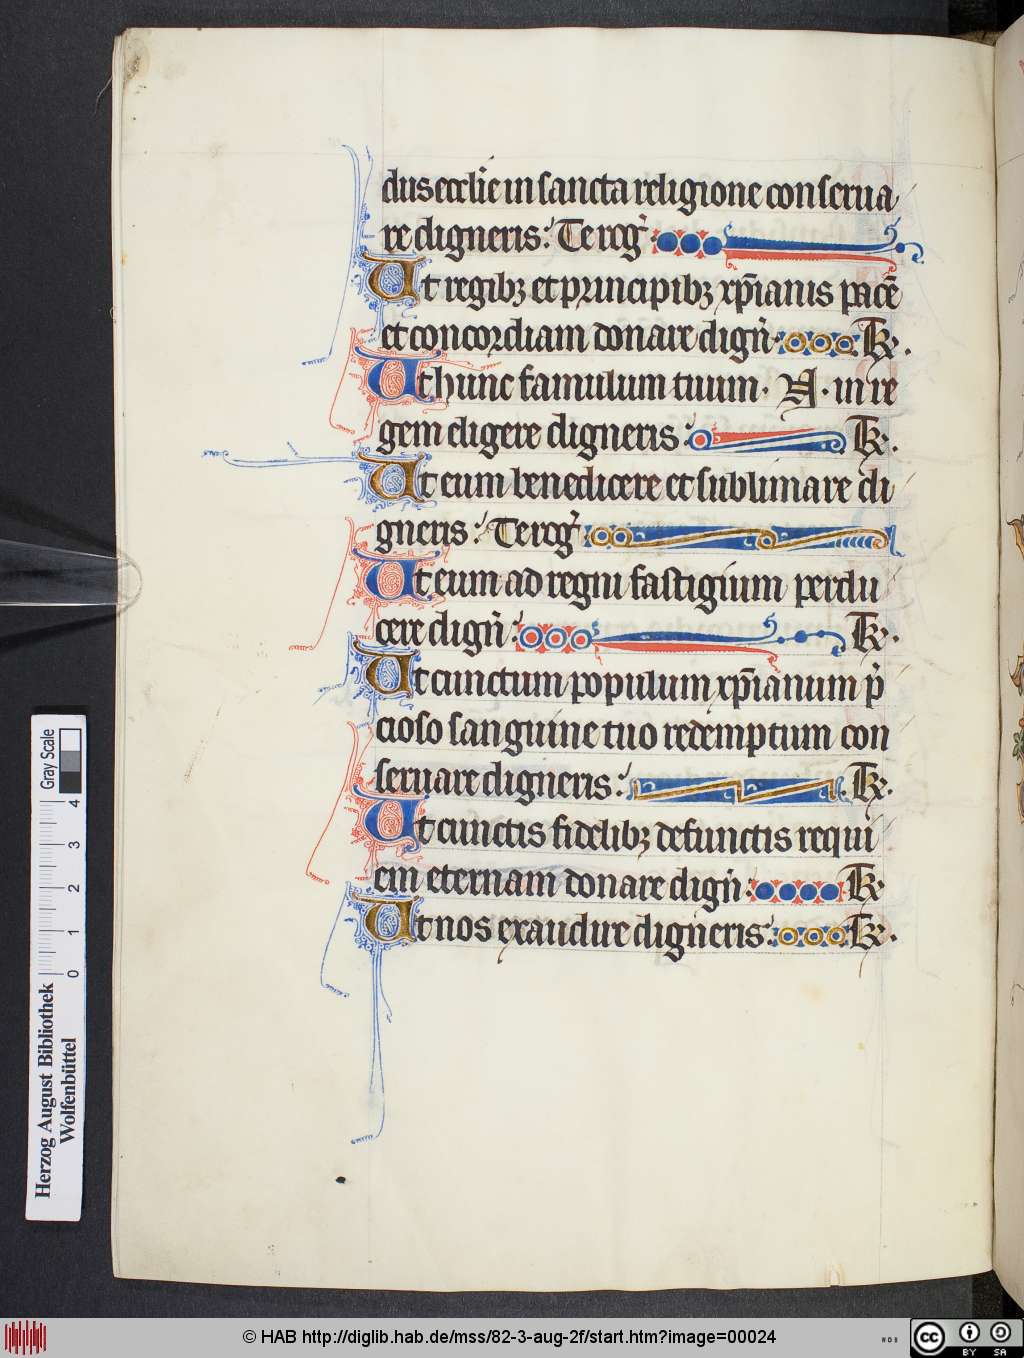 dus eccl̄ie in sancta religione conserua
re digneris. Te rog̉
Ut regibꝫ et principibꝫ xp̄ianis pacē
et concordiam donare dign̄. ꝶ.
Ut hunc famulum tuum. N. in re
gem eligere digneris. ꝶ.
Ut eum benedicere et sublimare di
gneris. Te rog̉
Ut eum ad regni fastigium perdu
cere dign̄. ꝶ.
Ut cunctum populum xp̄ianum p̉
cioso sanguine tuo redemptum con
seruare digneris. ꝶ.
Ut cunctis fidelibꝫ defunctis requi
em eternam donare dign̄. ꝶ
Ut nos exaudire digneris. ꝶ.
Gray Scale
4
3
2
1
0
Herzog August Bibliothek
Wolfenbüttel
© HAB http://diglib.hab.de/mss/82-3-aug-2f/start.htm?image=00024
WDB
cc BY SA